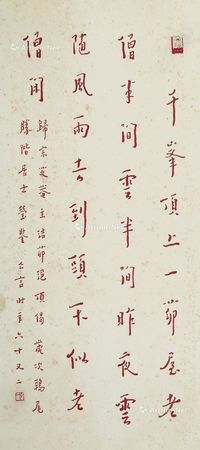 千峯頂上一茆屋老
僧半間雲半間昨夜雲
隨風雨去到頭不似老
僧閑
歸宗芝菴主結茆絕頂偈 歲次鶉尾
勝階居士瑩鑒 仁吉時年六十又二